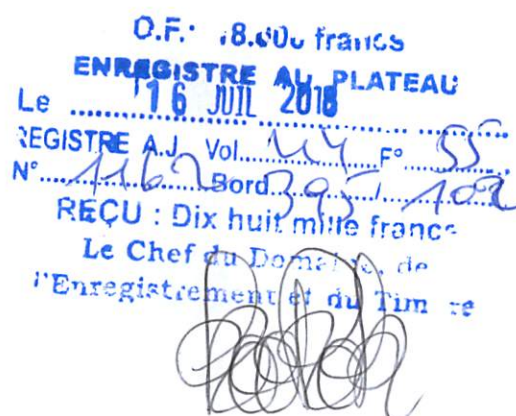 D.F.: 18.000 francs
ENREGISTRE AU PLATEAU
Le 16 JUIL 2018
REGISTRE A.J. Vol. 44 F° 55
N° 1162 Bord 395 / 102
REÇU : Dix huit mille francs
Le Chef du Domaine, de
l'Enregistrement et du Timbre